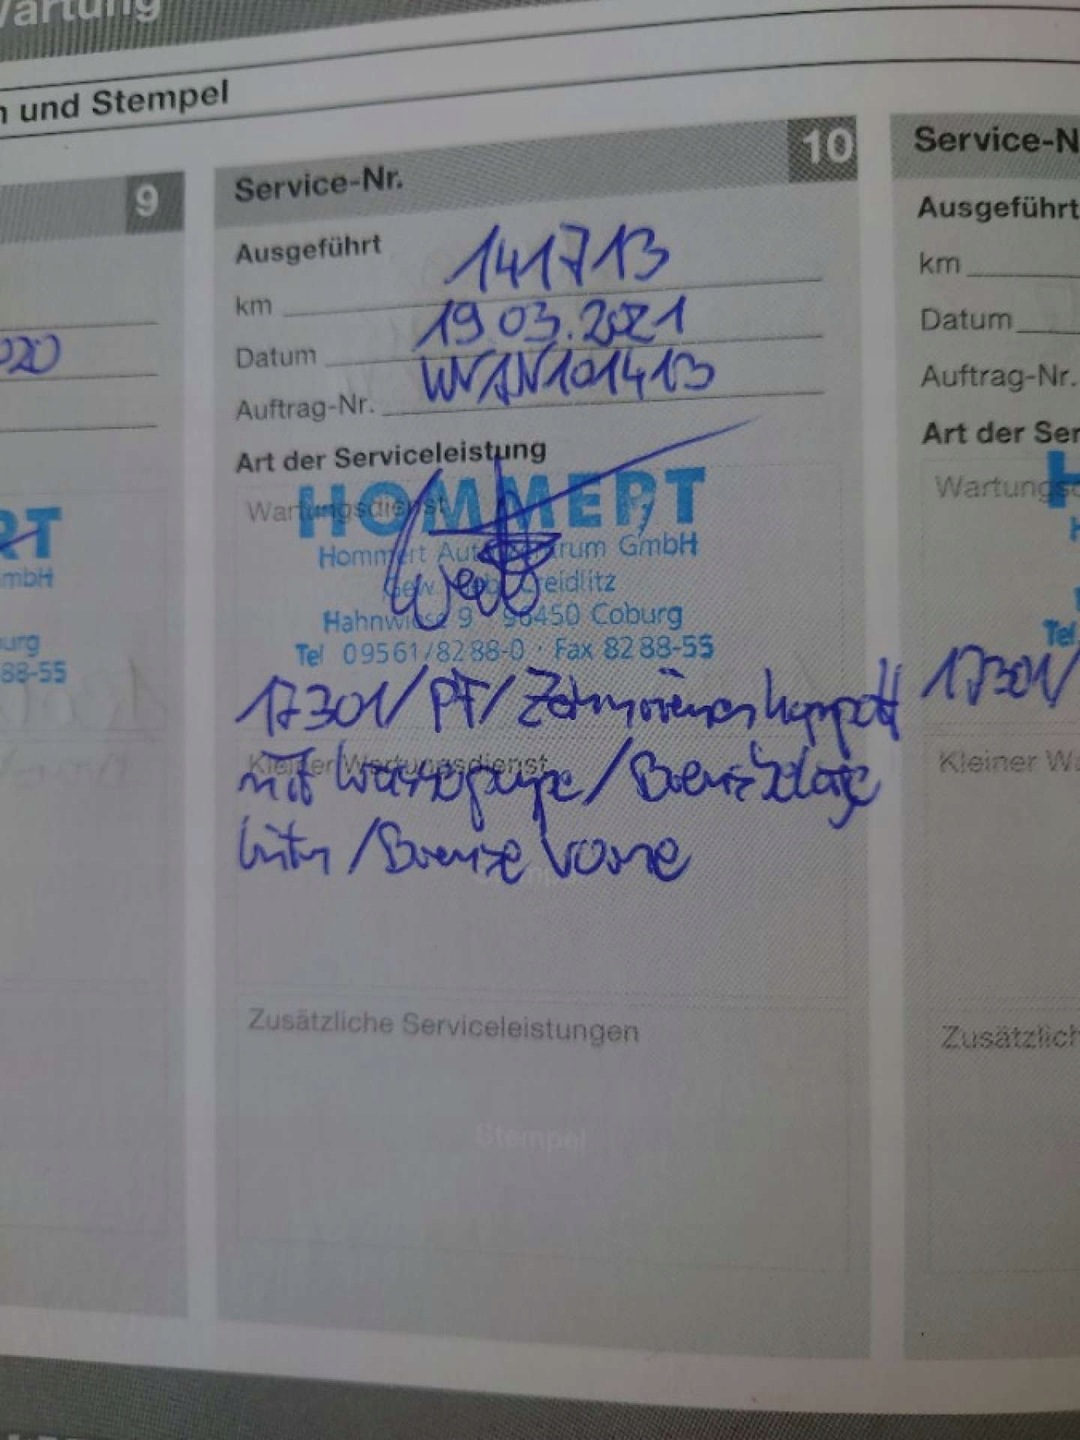 artung
n und Stempel
9
020
RT
mbH
urg
88-55
Service-Nr. 10
Ausgeführt
km 141713
Datum 19.03.2021
Auftrag-Nr. WVAN101413
Art der Serviceleistung
Wartungsdienst
HOMMERT
Hommert Autozentrum GmbH
Gew. Creidlitz
Hahnwiese 9 96450 Coburg
Tel 09561/8288-0 · Fax 8288-55
17301/PF/Zahnriemen kompott
Kleiner Wartungsdienst
mit Wasserpumpe/Bremsbeläge
hinten/Bremse vorne
Stempel
Zusätzliche Serviceleistungen
Stempel
Service-N
Ausgeführt
km
Datum
Auftrag-Nr.
Art der Ser
Wartungsd
H
Tel
17301/
Kleiner Wa
Zusätzlich